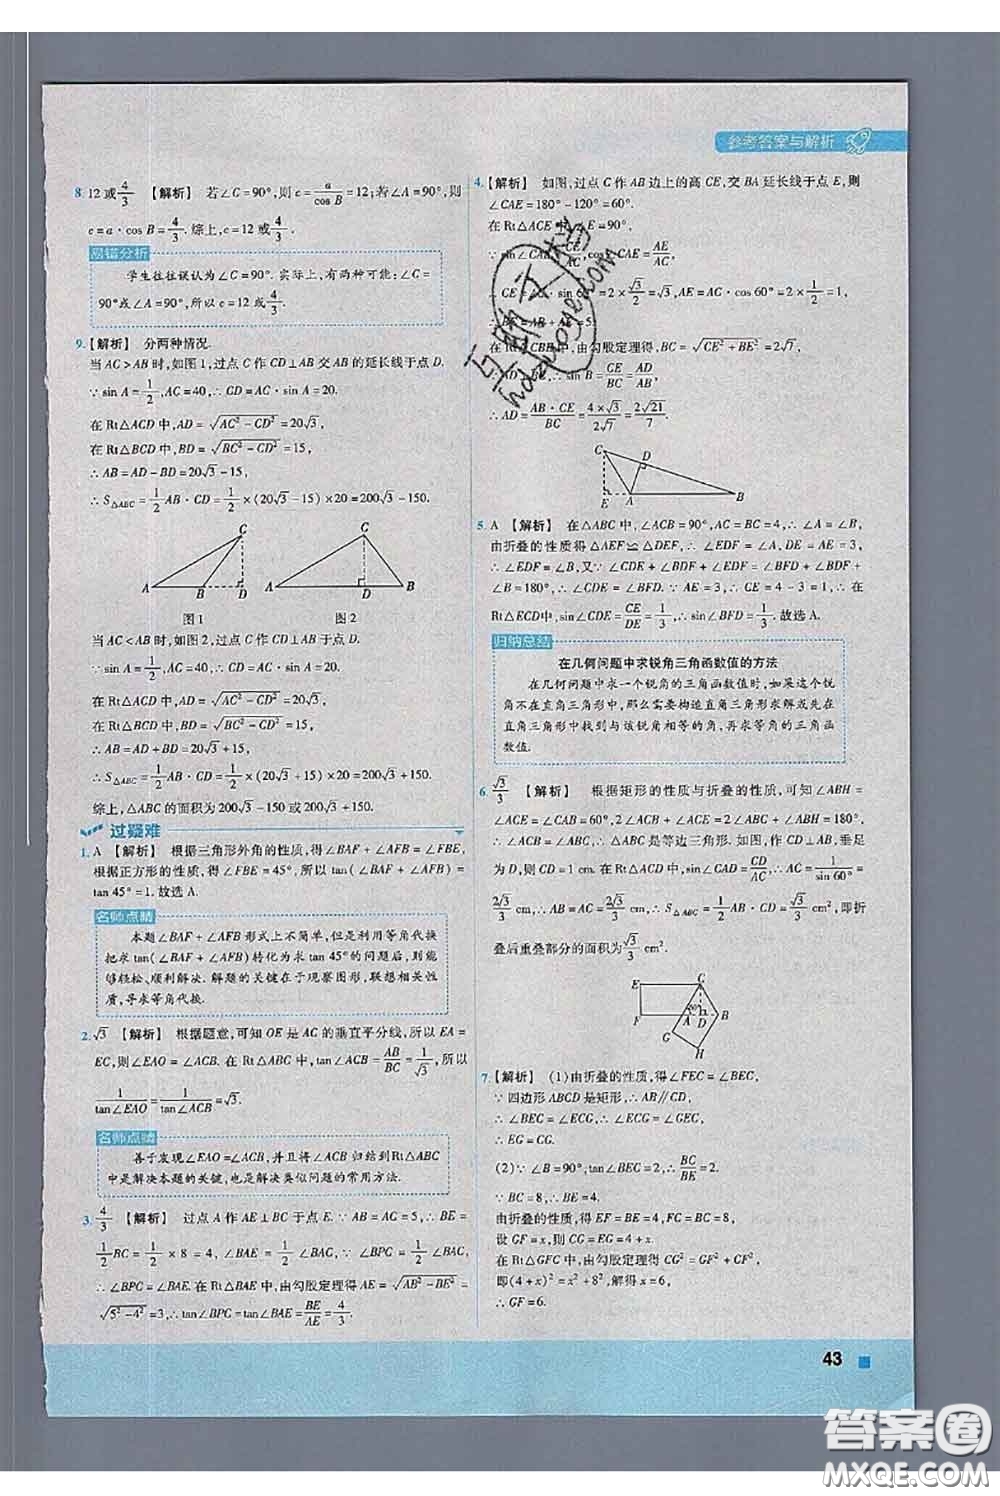 参考答案与解析
8. 12或4/3 【解析】 若∠C=90°,则c=a/cos B=12;若∠A=90°,则
c=a·cos B=4/3. 综上,c=12或4/3.
易错分析
学生往往误认为∠C=90°. 实际上,有两种可能:∠C=
90°或∠A=90°,所以c=12或4/3.
9.【解析】 分两种情况.
当AC>AB时,如图1,过点C作CD⊥AB交AB的延长线于点D.
∵sin A=1/2,AC=40,∴CD=AC·sin A=20.
在Rt△ACD中,AD=√(AC²-CD²)=20√3,
在Rt△BCD中,BD=√(BC²-CD²)=15,
∴AB=AD-BD=20√3-15,
∴S△ABC=1/2AB·CD=1/2×(20√3-15)×20=200√3-150.
C
A B D
图1
C
A D B
图2
当AC<AB时,如图2,过点C作CD⊥AB于点D.
∵sin A=1/2,AC=40,∴CD=AC·sin A=20.
在Rt△ACD中,AD=√(AC²-CD²)=20√3,
在Rt△BCD中,BD=√(BC²-CD²)=15,
∴AB=AD+BD=20√3+15,
∴S△ABC=1/2AB·CD=1/2×(20√3+15)×20=200√3+150.
综上,△ABC的面积为200√3-150或200√3+150.
过疑难
1. A 【解析】 根据三角形外角的性质,得∠BAF+∠AFB=∠FBE,
根据正方形的性质,得∠FBE=45°,所以tan(∠BAF+∠AFB)=
tan 45°=1. 故选A.
名师点睛
本题∠BAF+∠AFB形式上不简单,但是利用等角代换
把求tan(∠BAF+∠AFB)转化为求tan 45°的问题后,则能
够轻松、顺利解决. 解题的关键在于观察图形,联想相关性
质,寻求等角代换.
2. √3 【解析】 根据题意,可知OE是AC的垂直平分线,所以EA=
EC,则∠EAO=∠ACB. 在Rt△ABC中,tan∠ACB=AB/BC=1/√3,所以
1/tan∠EAO=1/tan∠ACB=√3.
名师点睛
善于发现∠EAO=∠ACB,并且将∠ACB归结到Rt△ABC
中是解决本题的关键,也是解决类似问题的常用方法.
3. 4/3 【解析】 过点A作AE⊥BC于点E. ∵AB=AC=5,∴BE=
1/2BC=1/2×8=4,∠BAE=1/2∠BAC. ∵∠BPC=1/2∠BAC,
∴∠BPC=∠BAE. 在Rt△BAE中,由勾股定理得AE=√(AB²-BE²)=
√(5²-4²)=3,∴tan∠BPC=tan∠BAE=BE/AE=4/3.
4.【解析】 如图,过点C作AB边上的高CE,交BA延长线于点E,则
∠CAE=180°-120°=60°.
在Rt△ACE中,∠E=90°,
∴sin∠CAE=CE/AC,cos∠CAE=AE/AC,
∴CE=AC·sin 60°=2×√3/2=√3,AE=AC·cos 60°=2×1/2=1,
∴BE=AB+AE=5.
在Rt△CEB中,由勾股定理得,BC=√(CE²+BE²)=2√7,
∵AD⊥BC,∴sin B=CE/BC=AD/AB,
∴AD=AB·CE/BC=4×√3/2√7=2√21/7.
C
D
E A B
5. A 【解析】 在△ABC中,∠ACB=90°,AC=BC=4,∴∠A=∠B,
由折叠的性质得△AEF≌△DEF,∴∠EDF=∠A,DE=AE=3,
∴∠EDF=∠B,又∵∠CDE+∠EDF+∠BDF=∠BFD+∠BDF+
∠B=180°,∴∠CDE=∠BFD. ∵AE=3,∴CE=4-3=1,∴在
Rt△ECD中,sin∠CDE=CE/DE=1/3,∴sin∠BFD=1/3. 故选A.
归纳总结
在几何问题中求锐角三角函数值的方法
在几何问题中求一个锐角的三角函数值时,如果这个锐
角不在直角三角形中,那么需要构造直角三角形求解或先在
直角三角形中找到与该锐角相等的角,再求等角的三角函
数值.
6. √3/3 【解析】 根据矩形的性质与折叠的性质,可知∠ABH=
∠ACE=∠CAB=60°,2∠ACB+∠ACE=2∠ABC+∠ABH=180°,
∴∠ACB=∠ABC,∴△ABC是等边三角形. 如图,作CD⊥AB,垂足
为D,则CD=1 cm. 在Rt△ACD中,sin∠CAD=CD/AC,∴AC=1/sin 60°=
2√3/3 cm,∴AB=AC=2√3/3 cm,∴S△ABC=1/2AB·CD=√3/3 cm²,即折
叠后重叠部分的面积为√3/3 cm².
E C
F A D B
60°
G
H
7.【解析】 (1)由折叠的性质,得∠FEC=∠BEC,
∵四边形ABCD是矩形,∴AB∥CD,
∴∠BEC=∠ECG,∴∠ECG=∠GEC,
∴EG=CG.
(2)∵∠B=90°,tan∠BEC=2,∴BC/BE=2.
∵BC=8,∴BE=4,
由折叠的性质,得EF=BE=4,FG=BC=8,
设GF=x,则CG=EG=4+x.
在Rt△GFC中,由勾股定理得CG²=GF²+CF²,
即(4+x)²=x²+8²,解得x=6,
∴GF=6.
43
答案圈
MXQE.COM